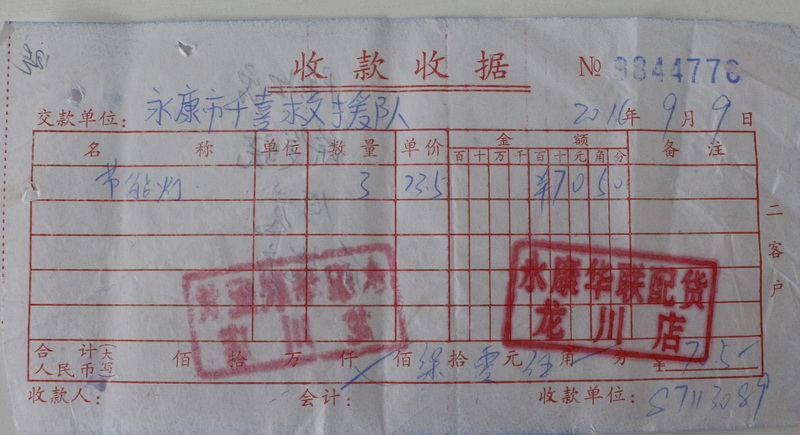 收款收据 № 9844776
交款单位: 永康市千喜救援队 2016年9月9日
名称 单位 数量 单价 金额 备注
百十万千百十元角分
节能灯 3 23.5 ¥70.50
二客户
永康华联配货
龙川店
合计人民币(大写) 佰拾万仟佰柒拾零元伍角分 ¥70.5
收款人: 会计: 收款单位: 87113089